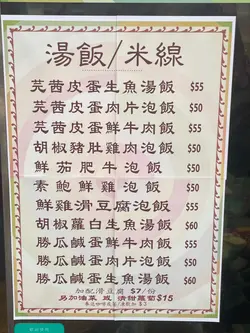 湯飯/米線
芫茜皮蛋生魚湯飯 $55
芫茜皮蛋肉片泡飯 $50
芫茜皮蛋鮮牛肉飯 $55
胡椒豬肚雞肉泡飯 $50
鮮茄肥牛泡飯 $50
素鮑鮮雞泡飯 $50
鮮雞滑豆腐泡飯 $55
胡椒蘿白生魚湯飯 $60
勝瓜鹹蛋鮮牛肉飯 $55
勝瓜鹹蛋肉片泡飯 $50
勝瓜鹹蛋生魚湯飯 $60
加配滑豆腐 $7/份
另加油菜 或 清甜蘿蔔$15